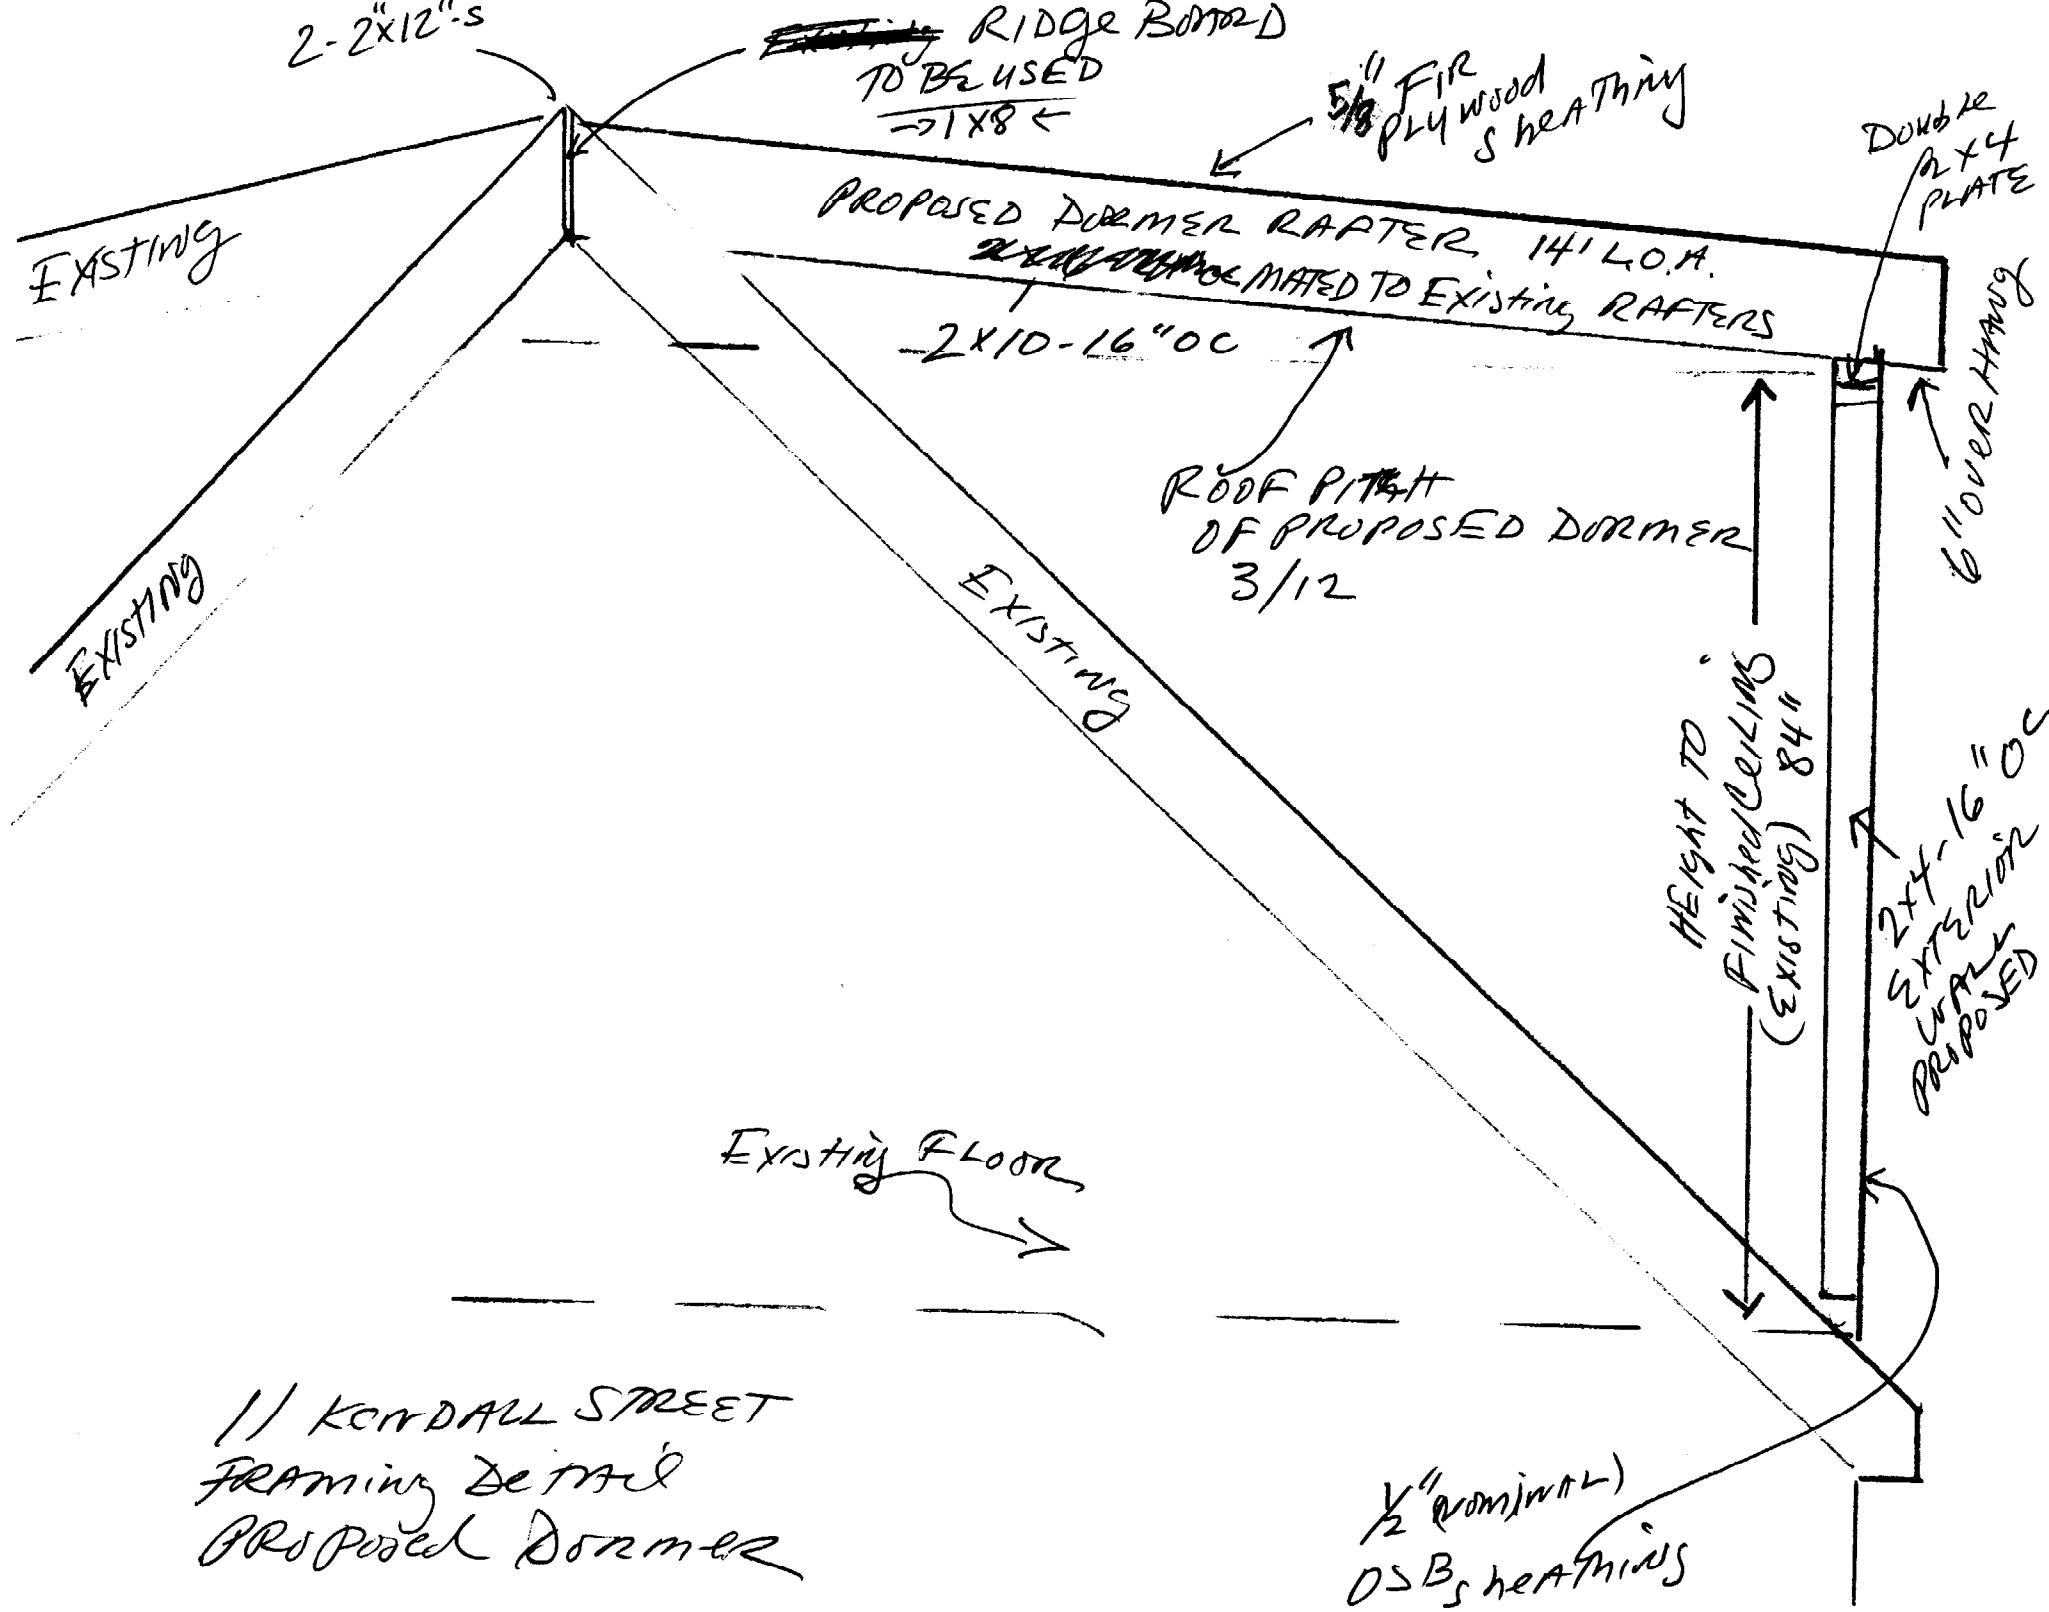 2-2"x12"-s
RIDge BOARD
TO BE USED
→1x8←
5/8" FIR
PLYWOOD
SheAThing
Double
2x4
PLATE
EXISTING
PROPOSED DORMER RAFTER 14' L.O.A.
MATED TO Existing RAFTERS
2x10-16"OC
6" OVERHANG
ROOF PITCH
OF PROPOSED DORMER
3/12
EXISTING
EXISTING
HEIGHT TO
Finished CeILING
(EXISTING) 84"
2x4-16"OC
EXTERIOR
WALL
PROPOSED
Existing FLOOR
11 KENDALL STREET
FRAMing DeTAil
PROPosed DORMER
1/2" (NOMINAL)
OSB SheAThiNg